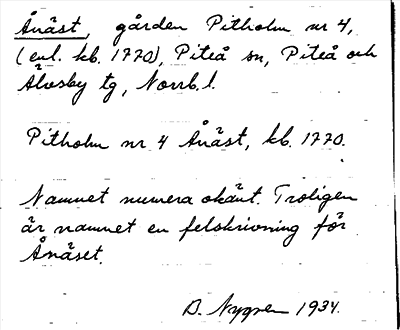 Ånäst, gården Pitholm nr 4,
(enl. kb. 1770), Piteå sn, Piteå och
Älvsby tg, Norrb. l.
Pitholm nr 4 Ånäst, kb. 1770.
Namnet numera okänt. Troligen
är namnet en felskrivning för
Ånäset.
B. Nygren 1934.